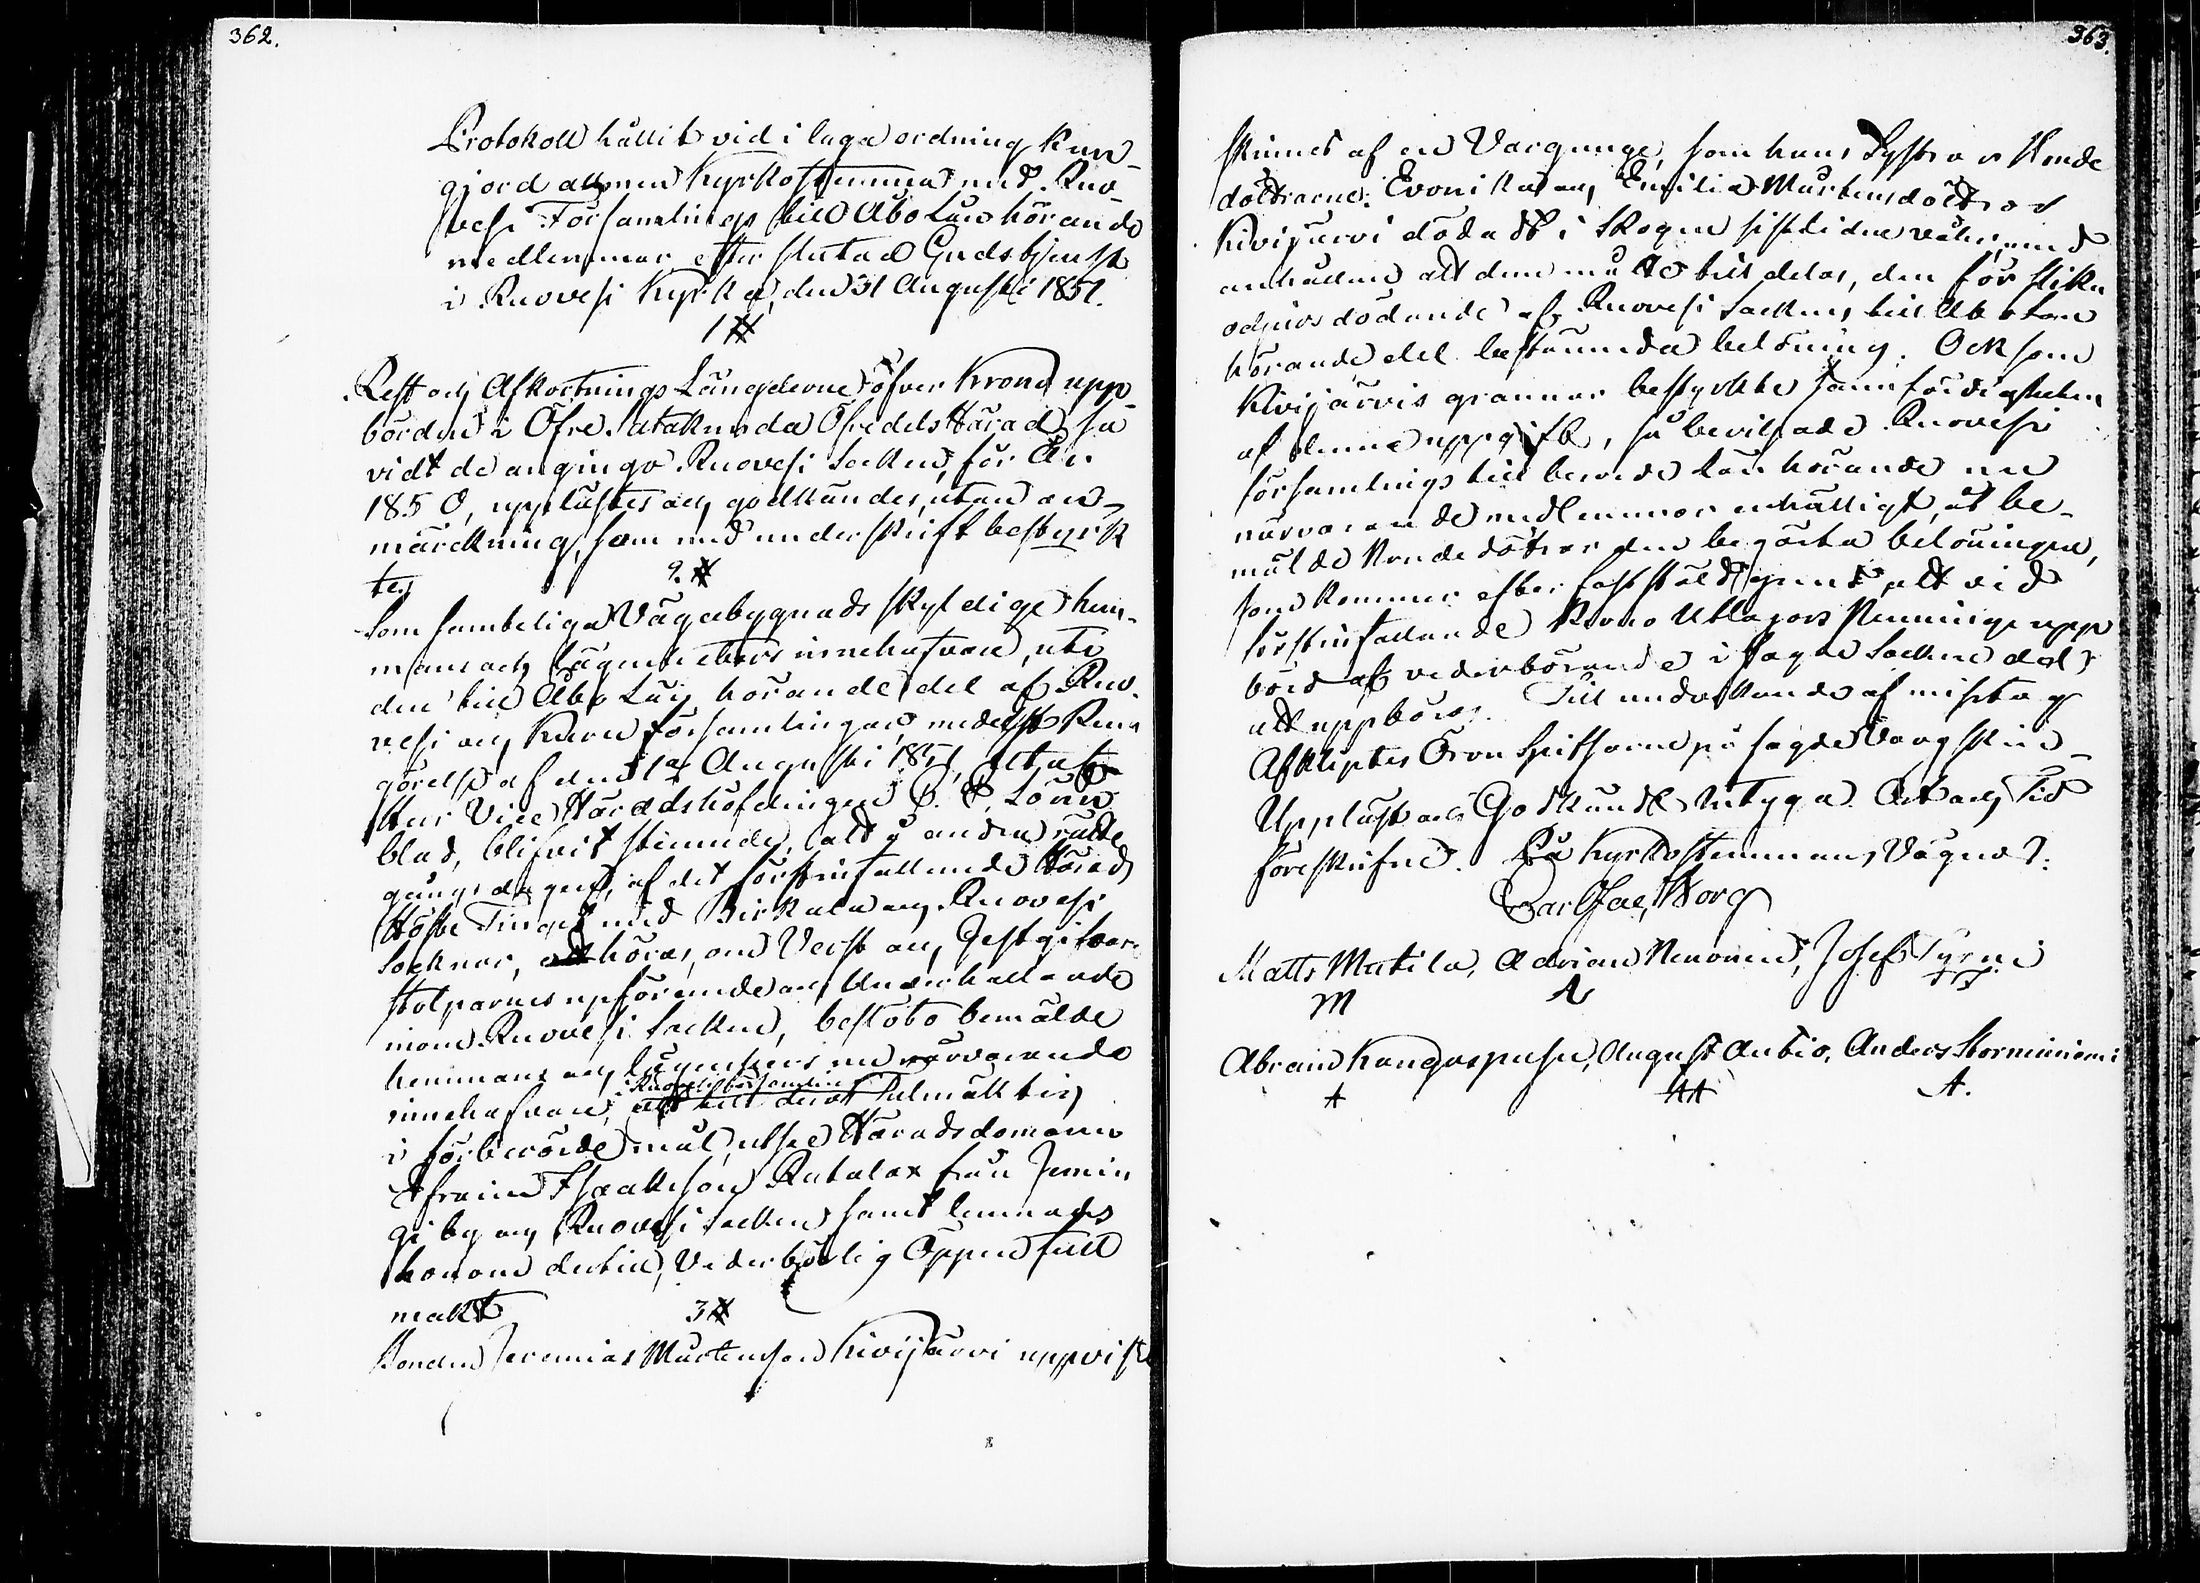 362.
Protokoll hållit vid i laga ordning kun-
gjord allmen Kyrkostemma med Ruo-
vesi Församlings till Åbo Län hörande
medlemmar efter slutad Gudstjenst
i Ruovesi Kyrka, den 31 Augusti 1851.
1 §
Rest och Afkortnings Längderne öfver Krono upp-
börden i Öfre Satakunda Öfredels Härad, så
vidt de angingo Ruovesi Socken, för År
1850, upplästes och godkändes, utan an-
märckning, som med underskrift bestyrk
tes
2. §
Som samteliga Vägabygnads skyldige hem-
mans och lägenheters innehafvare, uti
den till Åbo Län hörande del af Ruo-
vesi och Kuru församlingar, medelst Kun
görelse af den 1a Augusti 1851, utaf
Herr Vice Häradshöfdingen Löfn
blad, blifvit stemnde, att å andra rätte
gångs dagen, af det förstinfallande Härads
Höste Tinget med Birkala och Ruovesi
Socknar, höras, om Verst och Gestgifvare
stolparnes upförande och Underhallande
inom Ruovesi Socken, beslöto bemälde
hemmans och lägenheters nu närvarande
innehafvare, i Ruovesi församling att till deras fulmäktig
i förberörde mål, utse Häradsdomaren
Efraim Isaaksson Rutalax från Jemin
gi by och Ruovesi Socken samt lemnades
honom dertill, Vederbörlig Öppen full
makt
3 §
Bonden Jeremias Mårtensson Kivijärvi uppviste
363.
skinnet af en Vargunge, som hans Systrar Bonde
döttrarne Evonika och Emilia Mårtensdöttrar
Kivijärvi dödadt i Skogen sistlidne med
anhållan att dem måtte tilldelas, den för slika
odjurs dödande af Ruovesi Sockens till Åbo Län
hörande del bestämda belöning. Och som
Kivijärvis grannar bestyrkte sannfärdigheten
af denna uppgift, så beviljade Ruovesi
församlings till berörde Län hörande nu
närvarande medlemmar enhälligt, åt be-
mälde Bondedöttrar den begärta belöningen,
som kommer efter fastställd grund, att vid
förstinfallande Krono Utlagors Pennings upp
börd af vederbörande i sagde Socken del
att uppbäras. Till undvikande af misstag
Afkliptes Öron Spitsarne på sagde Varg skin-
Uppläst och Godkändt betyga. Ort och Tid
föreskrifne. På Kyrkostemmans Vägnar:
Carl Jac. Borg
Matts Mutila, Adrian Nenonen, Josef Tyrni
M A JT
Abram Kangaspusu, August Autio, Anders Storminiemi
A AA A.